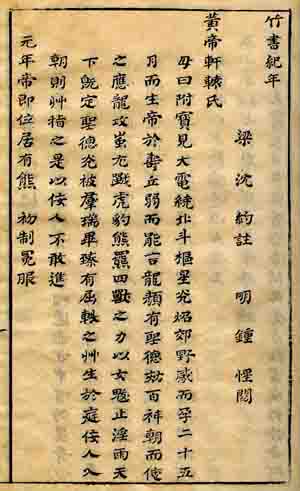 竹書紀年
梁 沈約註 明 鍾惺閱
黃帝軒轅氏
母曰附寶見大電繞北斗樞星光炤郊野感而孕二十五
月而生帝於壽丘弱而能言龍顏有聖德劾百神朝而使
之應龍攻蚩尤戰虎豹熊羆四獸之力以女魃止淫雨天
下既定聖德光被羣瑞畢臻有屈軼之艸生於庭佞人入
朝則艸指之是以佞人不敢進
元年帝即位居有熊 初制冕服